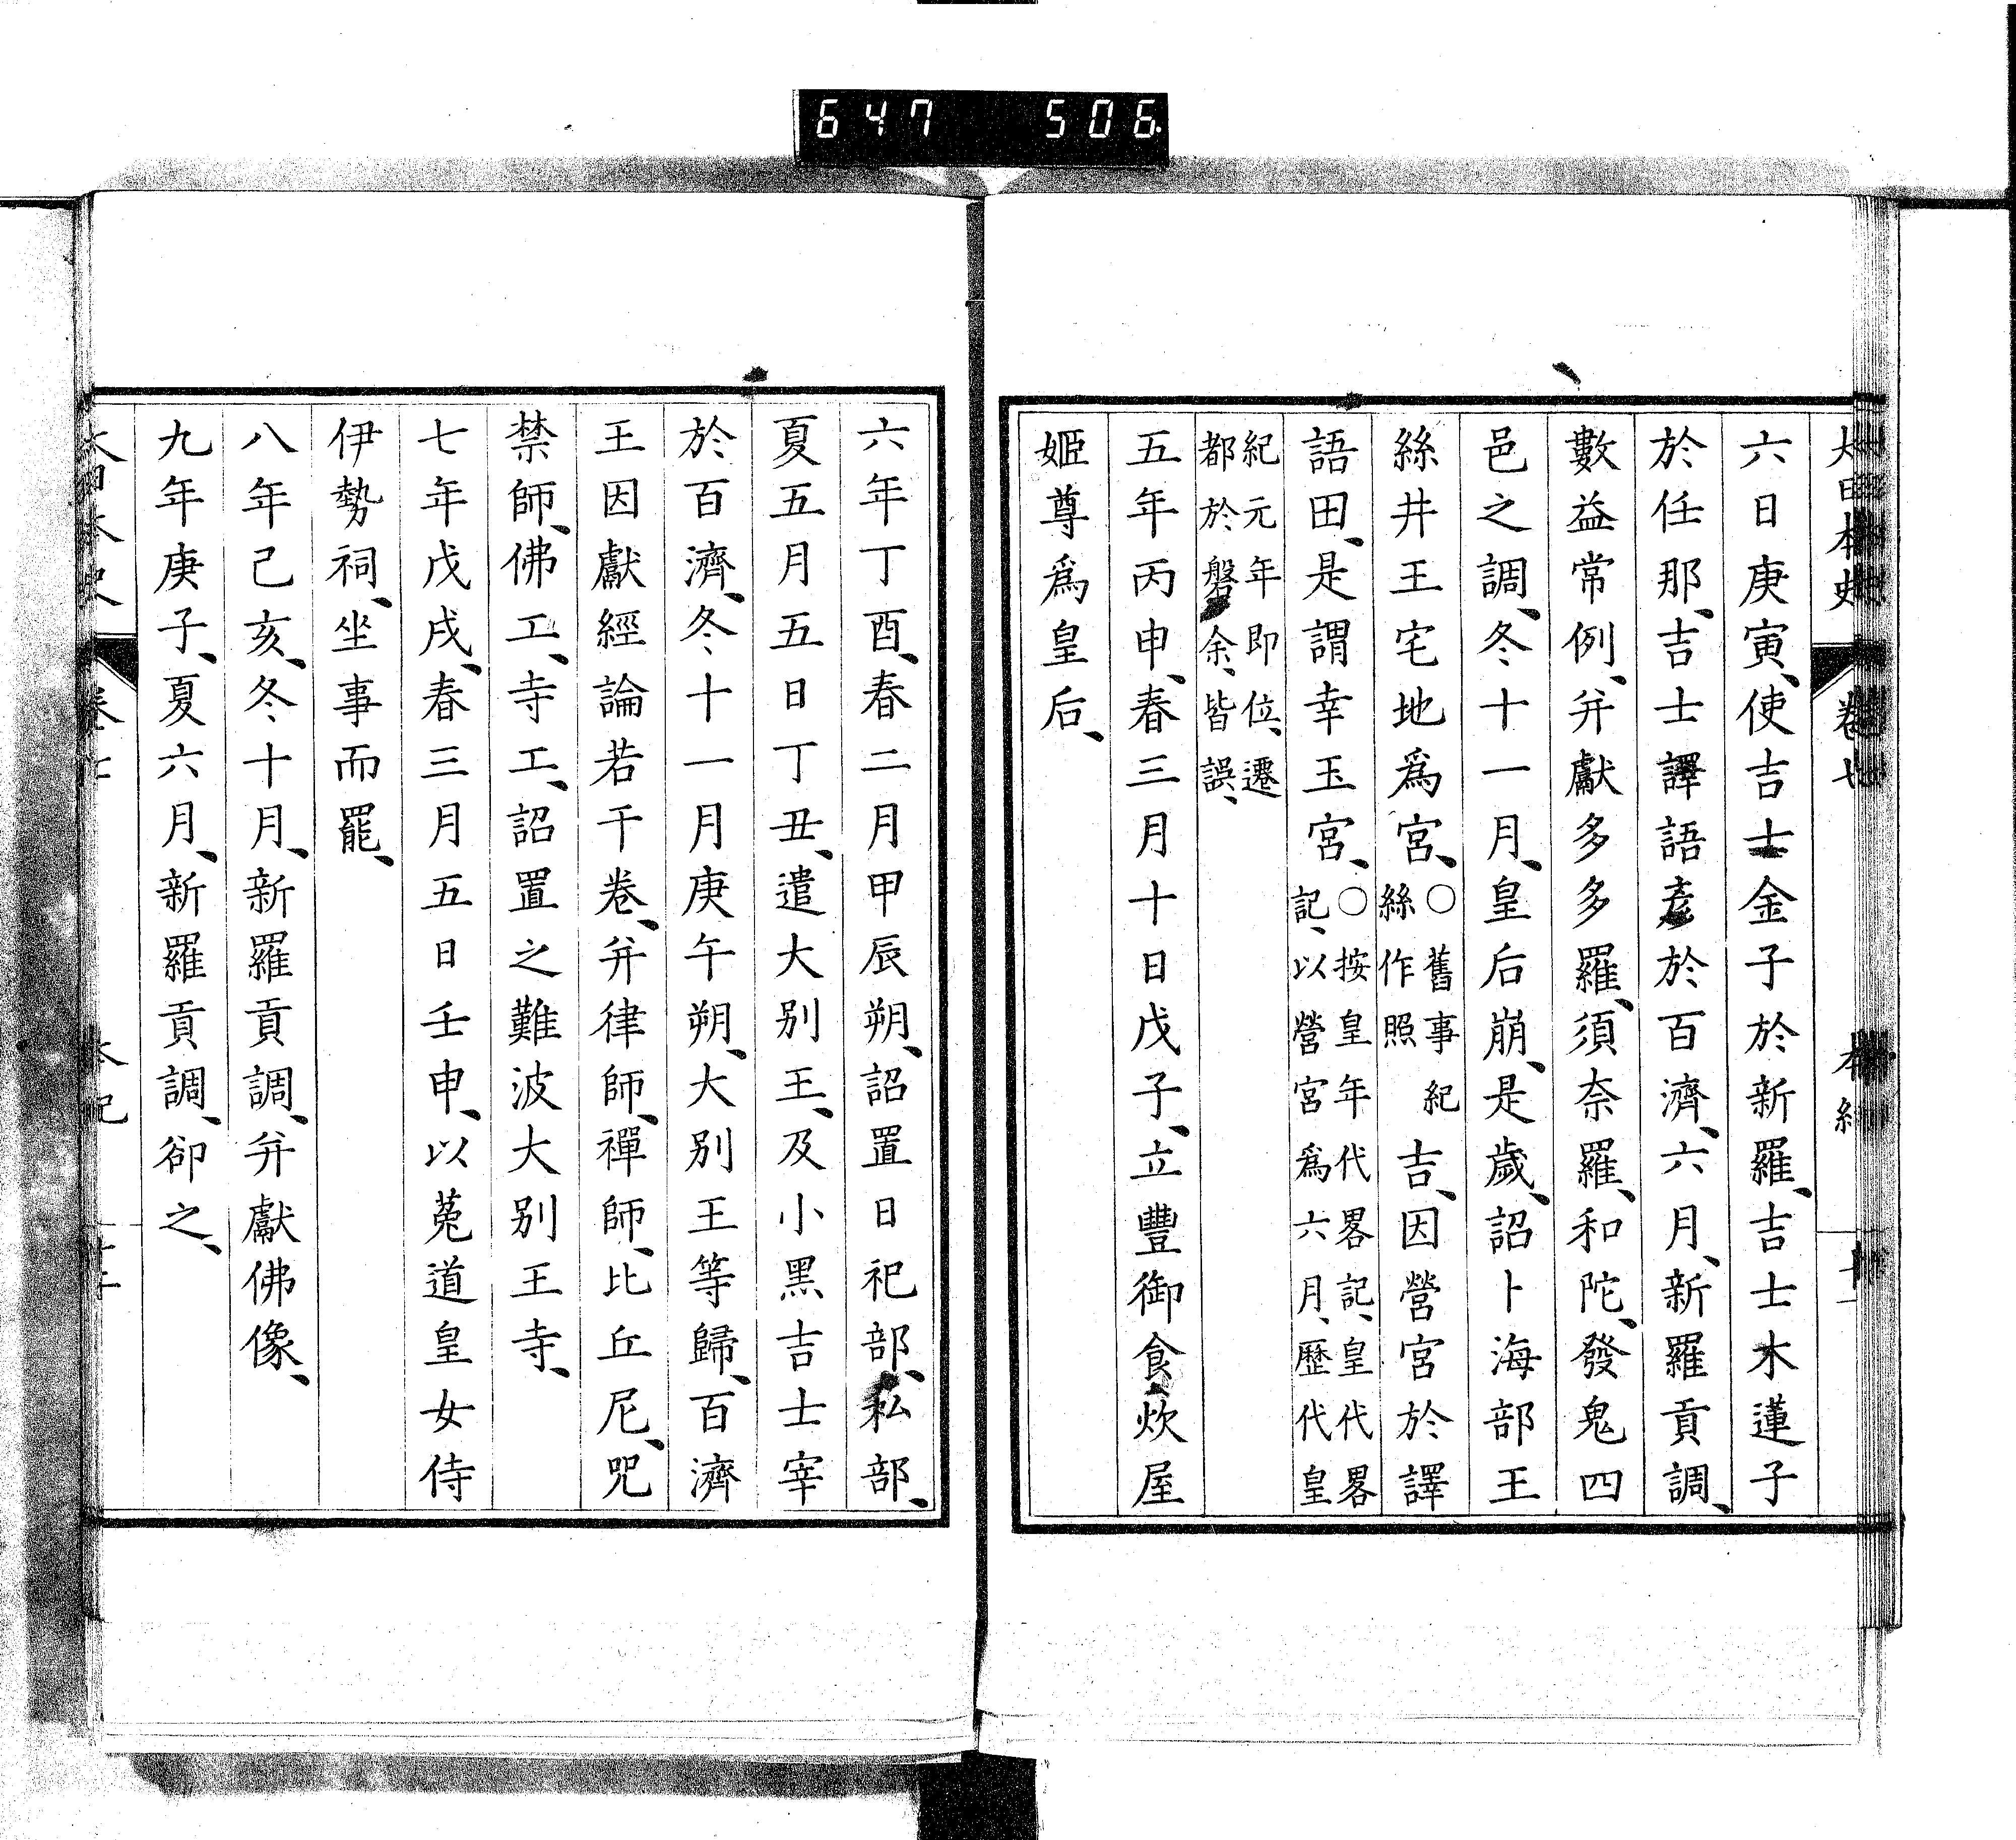 647 506
大日本史 卷七 本紀 十一
六日庚寅、使吉士金子於新羅、吉士木蓮子
於任那、吉士譯語彥於百濟、六月、新羅貢調、
數益常例、幷獻多多羅、須奈羅、和陀、發鬼四
邑之調、冬十一月、皇后崩、是歲、詔卜海部王
絲井王宅地爲宮、○舊事紀絲作照吉、因營宮於譯
語田、是謂幸玉宮、○按皇年代畧記、皇代畧記、以營宮爲六月、歷代皇
紀元年即位、遷都於磐余、皆誤、
五年丙申、春三月十日戊子、立豐御食炊屋
姬尊爲皇后、
六年丁酉、春二月甲辰朔、詔置日祀部、私部、
夏五月五日丁丑、遣大別王、及小黑吉士宰
於百濟、冬十一月庚午朔、大別王等歸、百濟
王因獻經論若干卷、幷律師、禪師、比丘尼、咒
禁師、佛工、寺工、詔置之難波大別王寺、
七年戊戌、春三月五日壬申、以菟道皇女侍
伊勢祠、坐事而罷、
八年己亥、冬十月、新羅貢調、幷獻佛像、
九年庚子、夏六月、新羅貢調、卻之、